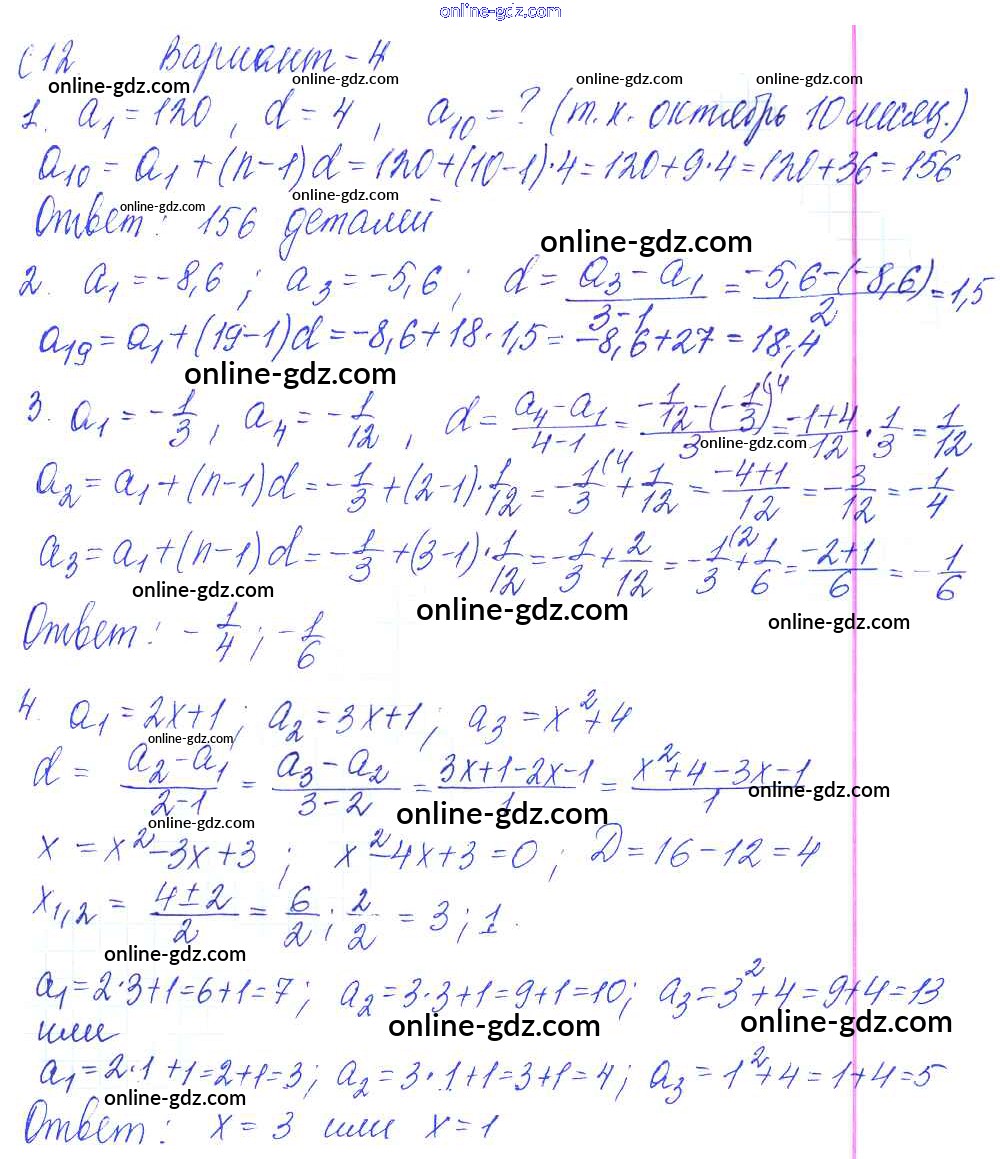 online-gdz.com
С12 Вариант-4
online-gdz.com online-gdz.com online-gdz.com online-gdz.com
1. a₁ = 120, d = 4, a₁₀ = ? (т.к. октябрь 10 месяц.)
a₁₀ = a₁ + (n-1)d = 120+(10-1)·4 = 120+9·4 = 120+36 = 156
online-gdz.com online-gdz.com
Ответ: 156 деталей
online-gdz.com
2. a₁ = -8,6; a₃ = -5,6; d = (a₃ - a₁)/(3-1) = (-5,6-(-8,6))/2 = 1,5
a₁₉ = a₁ + (19-1)d = -8,6 + 18·1,5 = -8,6+27 = 18,4
online-gdz.com
3. a₁ = -1/3, a₄ = -1/12, d = (a₄ - a₁)/(4-1) = (-1/12-(-1/3)⁽⁴)/3 = (-1+4)/12 · 1/3 = 1/12
online-gdz.com
a₂ = a₁ + (n-1)d = -1/3 + (2-1)·1/12 = -1/3⁽⁴ + 1/12 = (-4+1)/12 = -3/12 = -1/4
a₃ = a₁ + (n-1)d = -1/3 + (3-1)·1/12 = -1/3 + 2/12 = -1/3⁽² + 1/6 = (-2+1)/6 = -1/6
online-gdz.com online-gdz.com online-gdz.com
Ответ: -1/4; -1/6
4. a₁ = 2x+1; a₂ = 3x+1; a₃ = x²+4
online-gdz.com
d = (a₂ - a₁)/(2-1) = (a₃ - a₂)/(3-2) = (3x+1-2x-1)/1 = (x²+4-3x-1)/1
online-gdz.com online-gdz.com online-gdz.com
x = x²-3x+3; x²-4x+3=0; D=16-12=4
x₁,₂ = (4±2)/2 = 6/2; 2/2 = 3; 1.
online-gdz.com
a₁=2·3+1=6+1=7; a₂=3·3+1=9+1=10; a₃=3²+4=9+4=13
или online-gdz.com online-gdz.com
a₁=2·1+1=2+1=3; a₂=3·1+1=3+1=4; a₃=1²+4=1+4=5
online-gdz.com
Ответ: x=3 или x=1